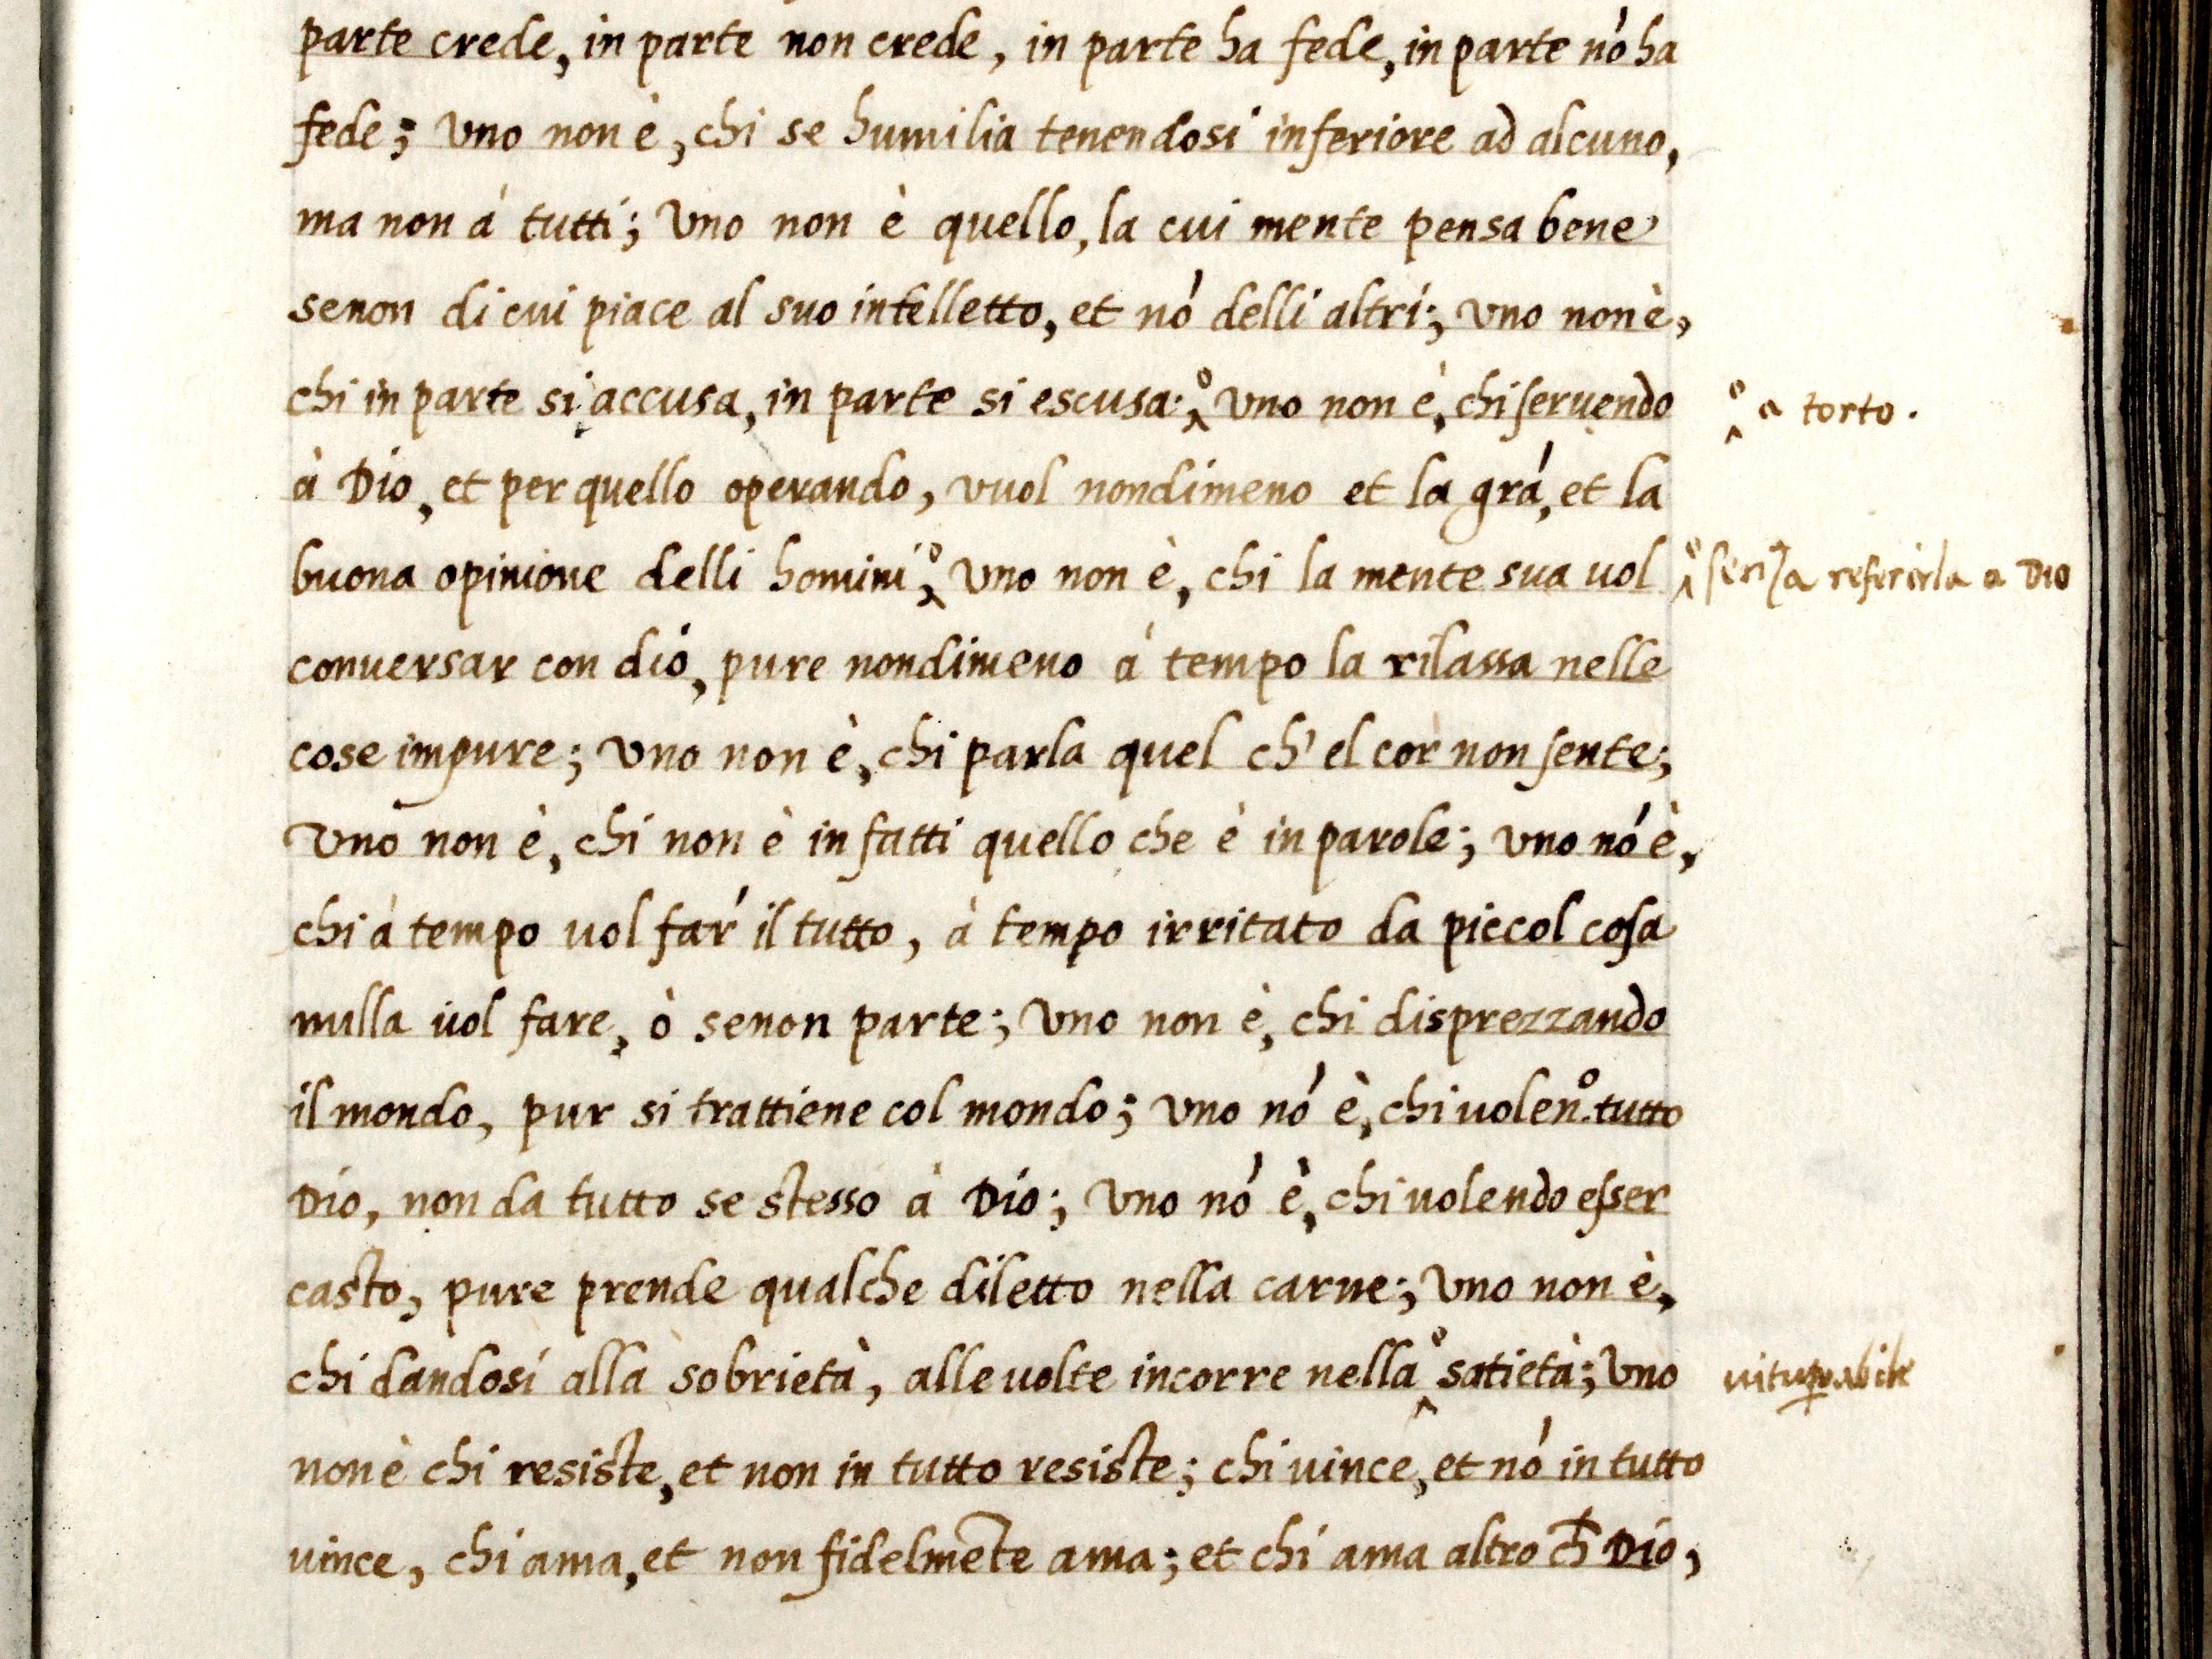 parte crede, in parte non crede, in parte ha fede, in parte nó ha
fede; uno non è, chi se humilia tenendosi inferiore ad alcuno,
ma non á tutti; Uno non è quello, la cui mente pensa bene
senon di cui piace al suo intelletto, et nó delli altri; uno non è,
chi in parte si accusa, in parte si escusa; Uno non è, chi seruendo
a torto.
à Dio, et per quello operando, vuol nondimeno et la grá, et la
buona opinione delli homini, Uno non è, chi la mente sua uol
senza referirla a Dio
conuersar con dio, pure nondimeno á tempo la rilassa nelle
cose impure; uno non è, chi parla quel ch'el cor non sente;
Uno non è, chi non è in fatti quello che è in parole; uno nó è,
chi á tempo uol far il tutto, à tempo irritato da piccol cosa
nulla uol fare, ò senon parte; Uno non è, chi disprezzando
il mondo, pur si trattiene col mondo; uno nó è, chi uolen.º tutto
Dio, non da tutto se stesso à Dio; Uno nó è, chi uolendo esser
casto, pure prende qualche diletto nella carne; Uno non è,
chi dandosi alla sobrietà, alle uolte incorre nella satietà; Uno
vitup̱abile
non è chi resiste, et non in tutto resiste; chi uince, et nó in tutto
uince, chi ama, et non fidelmēte ama; et chi ama altro ch̄ Dio,